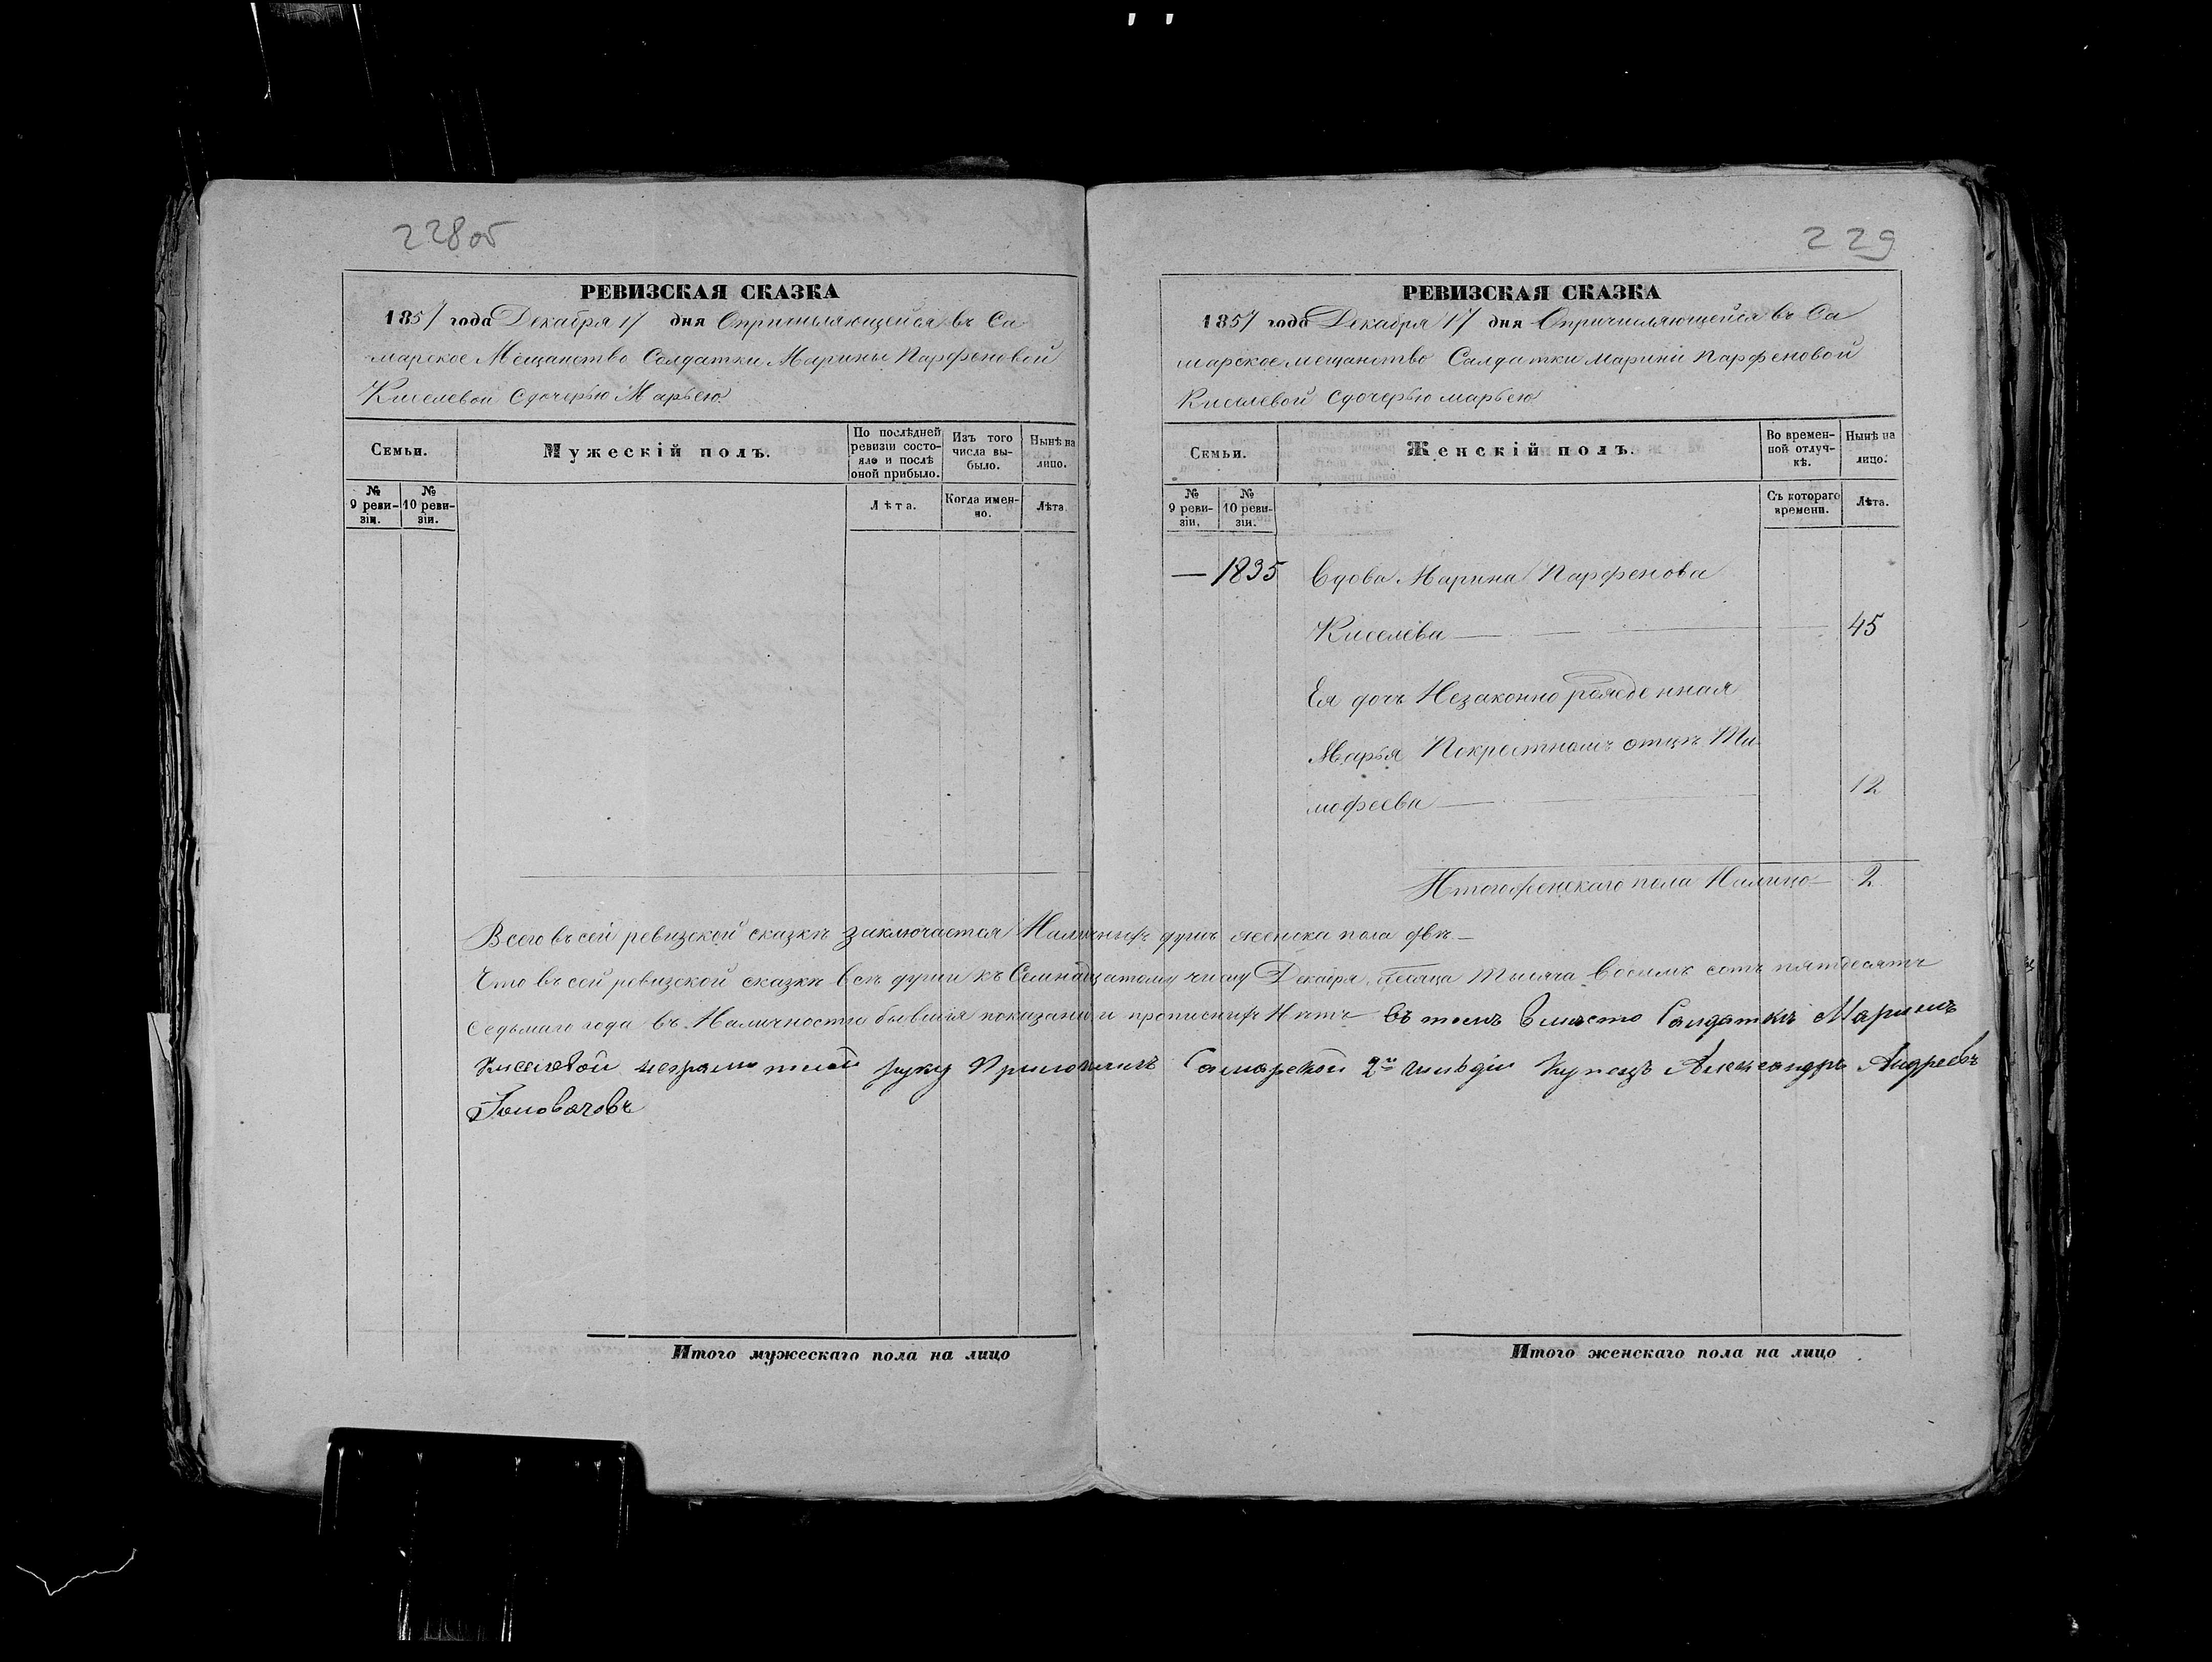 228об
РЕВИЗСКАЯ СКАЗКА
1857 года Декабря 17 дня Опричисляющейся въ Са
марское Мещанство Солдатки Марины Парфеновой
Киселевой сдочерью Марьею
Семьи.
Мужескій полъ.
По послѣдней ревизіи состояло и послѣ оной прибыло.
Изъ того числа выбыло.
Нынѣ на лицо.
№ 9 ревизіи.
№ 10 ревизіи.
Лѣта.
Когда именно.
Лѣта
Итого мужескаго пола на лицо
229
РЕВИЗСКАЯ СКАЗКА
1857 года Декабря 17 дня Опричисляющейся въ Са
марское мещанство Салдатки марини Парфеновой
Киселевой сдочерью марьею
Семьи.
Женскій полъ.
Во временной отлучкѣ.
Нынѣ на лицо.
№ 9 ревизіи.
№ 10 ревизіи.
Съ котораго времени.
Лѣта.
— 1835 Вдова Марина Парфенова
Киселева — 45
Ея дочь Незаконно рожденная
Марья Покрестномъ отцѣ Ти
мофеева — 12
Итого женскаго пола Налицо 2
Всего въ сей ревизской сказкѣ заключается Наличныхъ душъ женска пола двѣ —
Что въ сей ревизской сказкѣ всѣ души къ Семнадцатому числу Декабря месяца Тысяча восемь сотъ пятдесятъ
Седьмаго года въ Наличности бывшія показаны и прописныхъ Нѣтъ въ томъ вместо Салдатки Марины
Киселевой неграмотной руку Приложилъ Самарской 2й гильдіи Купецъ Александръ Андреевъ
Головачовъ
Итого женскаго пола на лицо